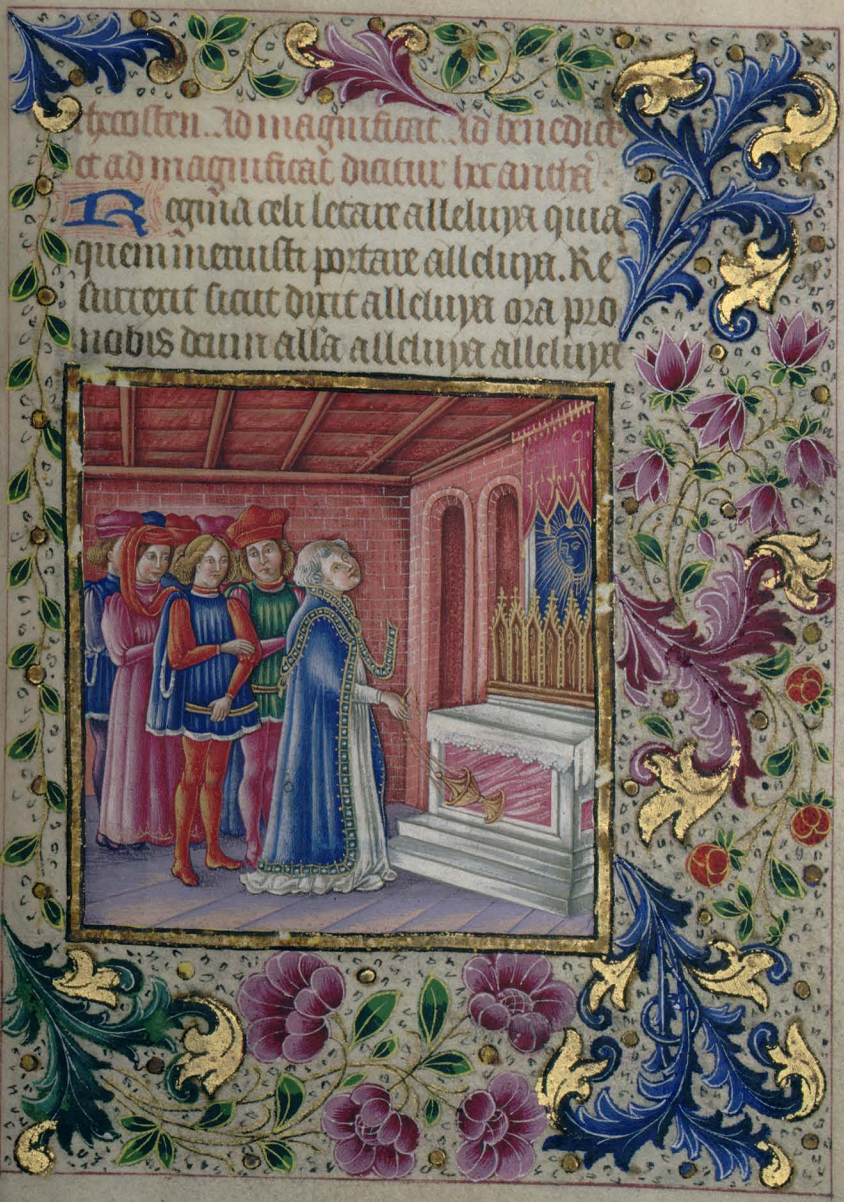 thecosten. Ad magnificat. Ad benedict
et ad magnificat dicitur hec antha.
Regina celi letare alleluya quia
quem meruisti portare alleluya. Re
surrexit sicut dixit alleluya ora pro
nobis deum all'a alleluya alleluya